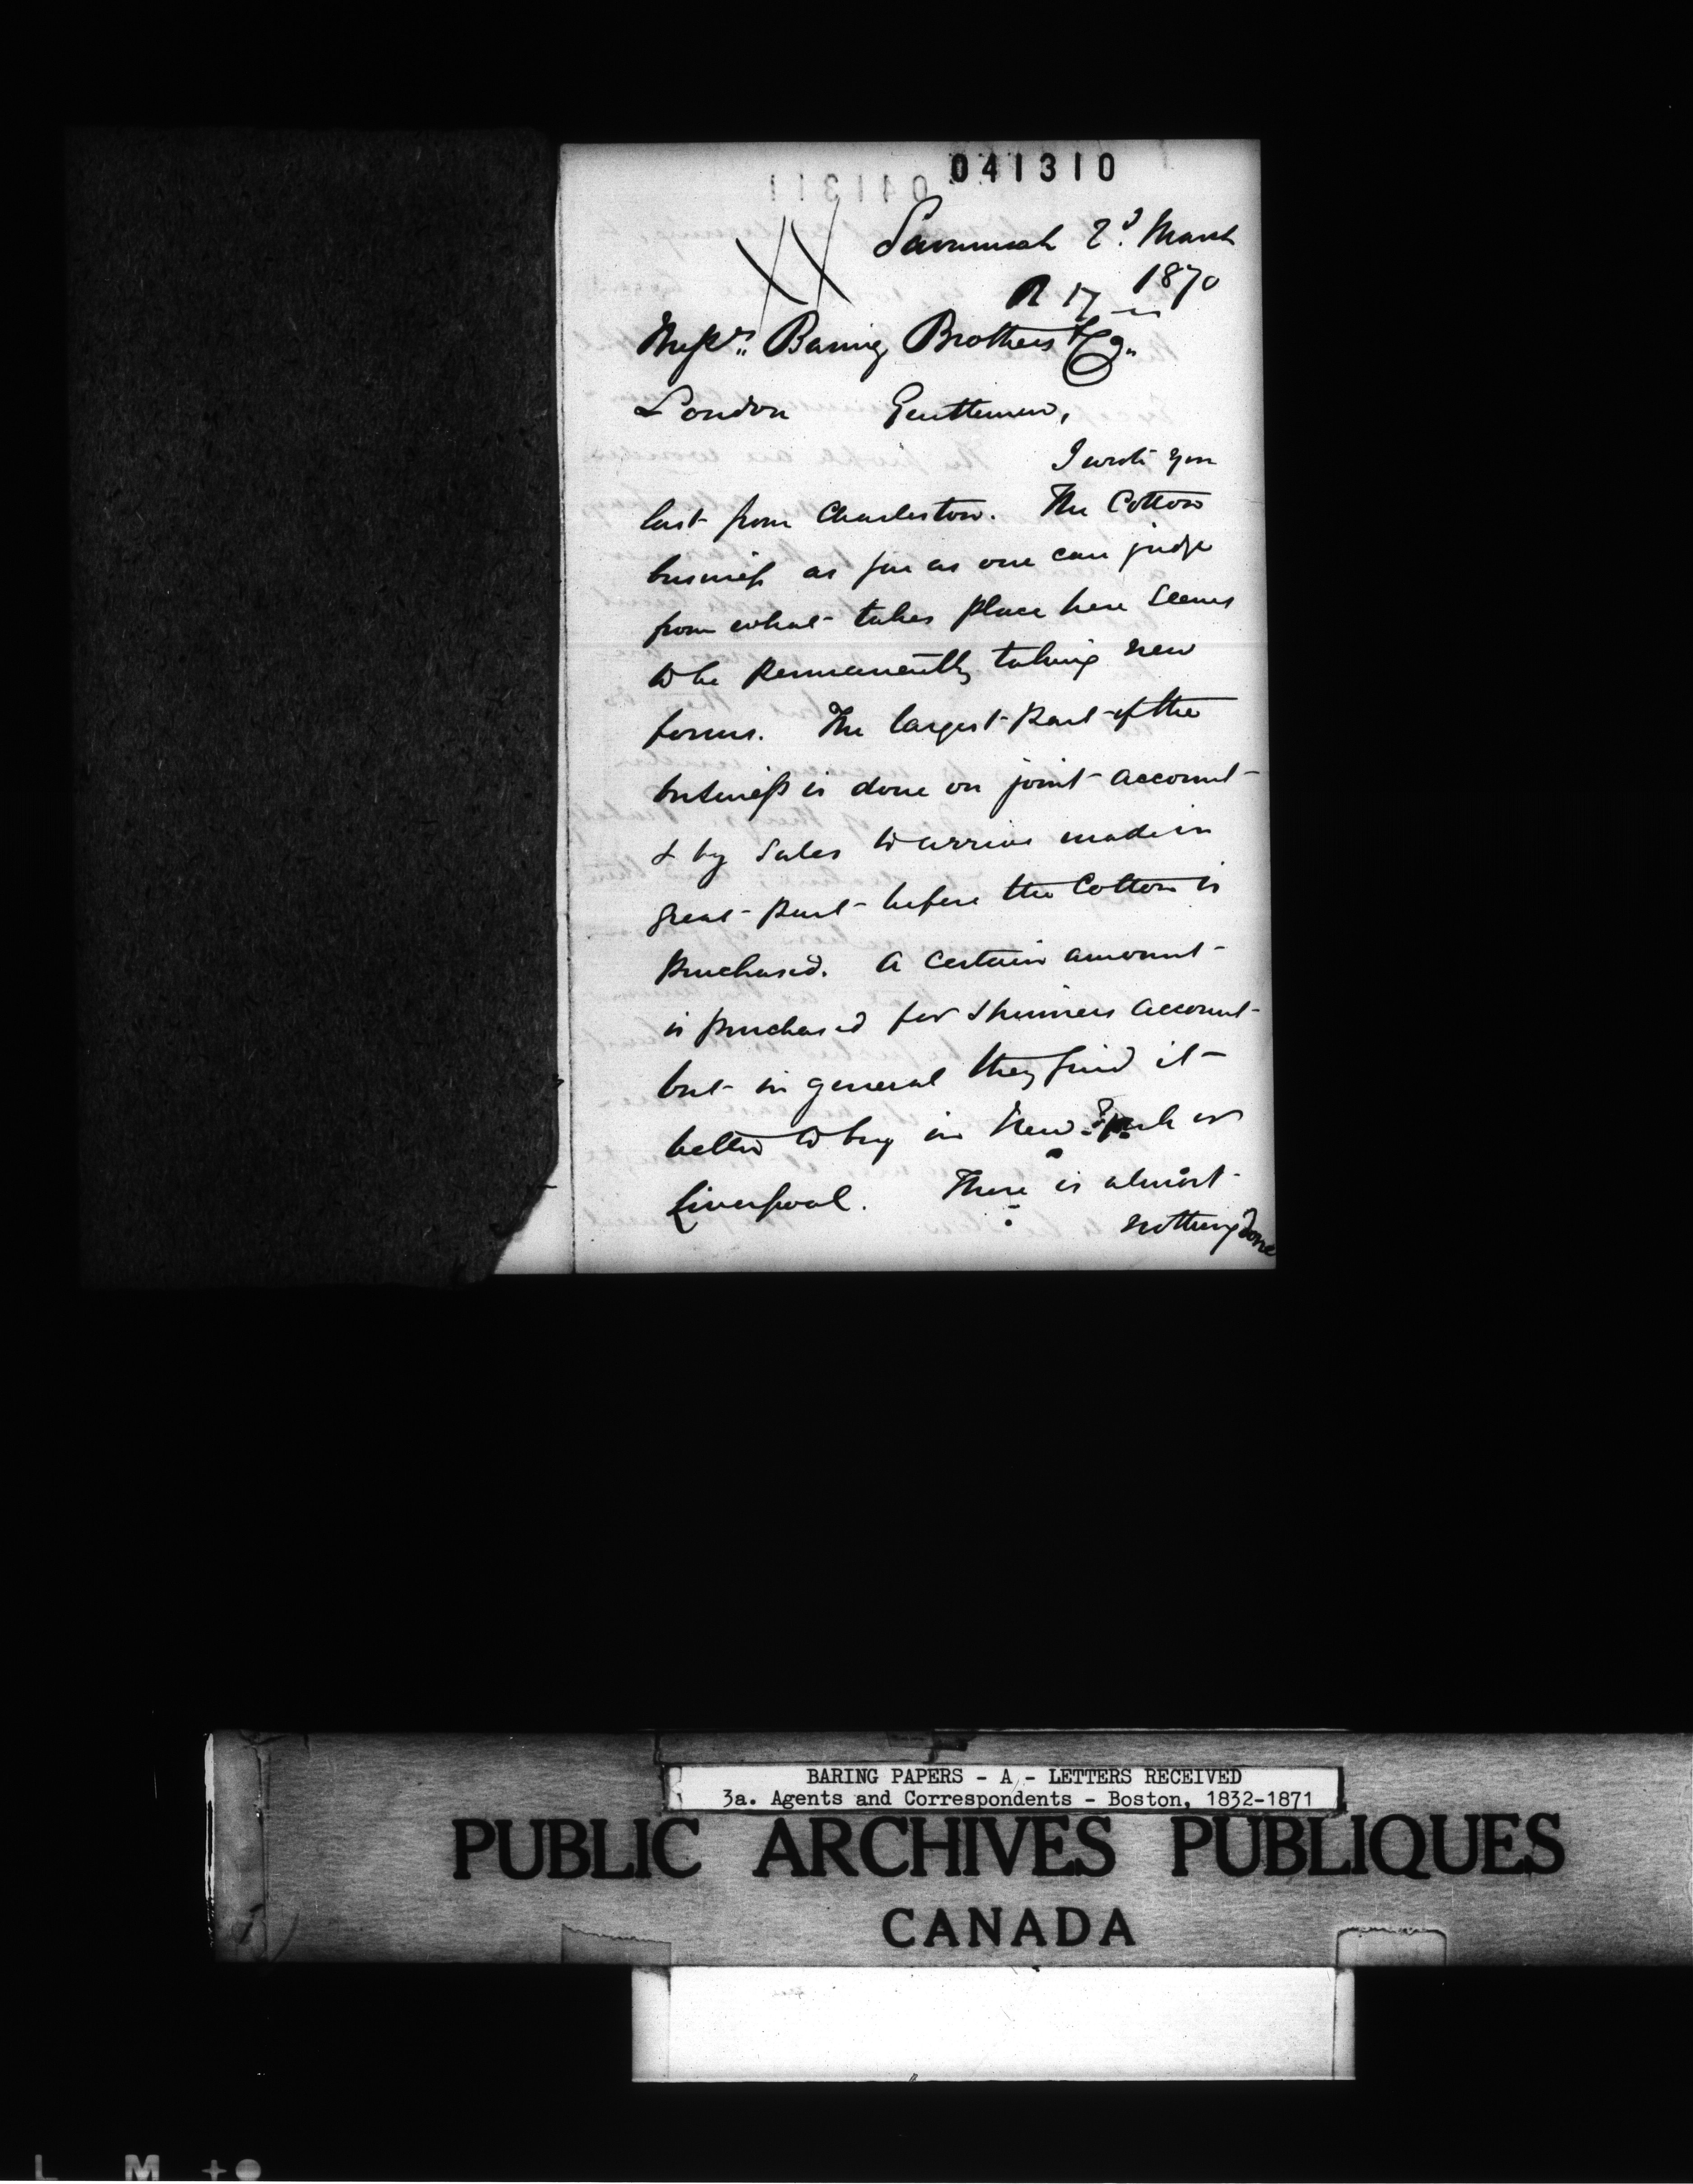 041310
Savannah 2d. March
R 17 1870
Messrs. Baring Brothers & Co.
London Gentlemen,
I wrote you
last from Charleston. The Cotton
business as far as one can judge
from what takes place here seems
to be permanently taking new
forms. The largest part of the
business is done on joint account
& by sales to arrive made in
great part before the Cotton is
purchased. A certain amount
is purchased for Spinners account
but in general they find it
better to buy in New York or
Liverpool. There is almost
nothing done
BARING PAPERS - A - LETTERS RECEIVED
3a. Agents and Correspondents - Boston, 1832-1871
PUBLIC ARCHIVES PUBLIQUES
CANADA
L M +